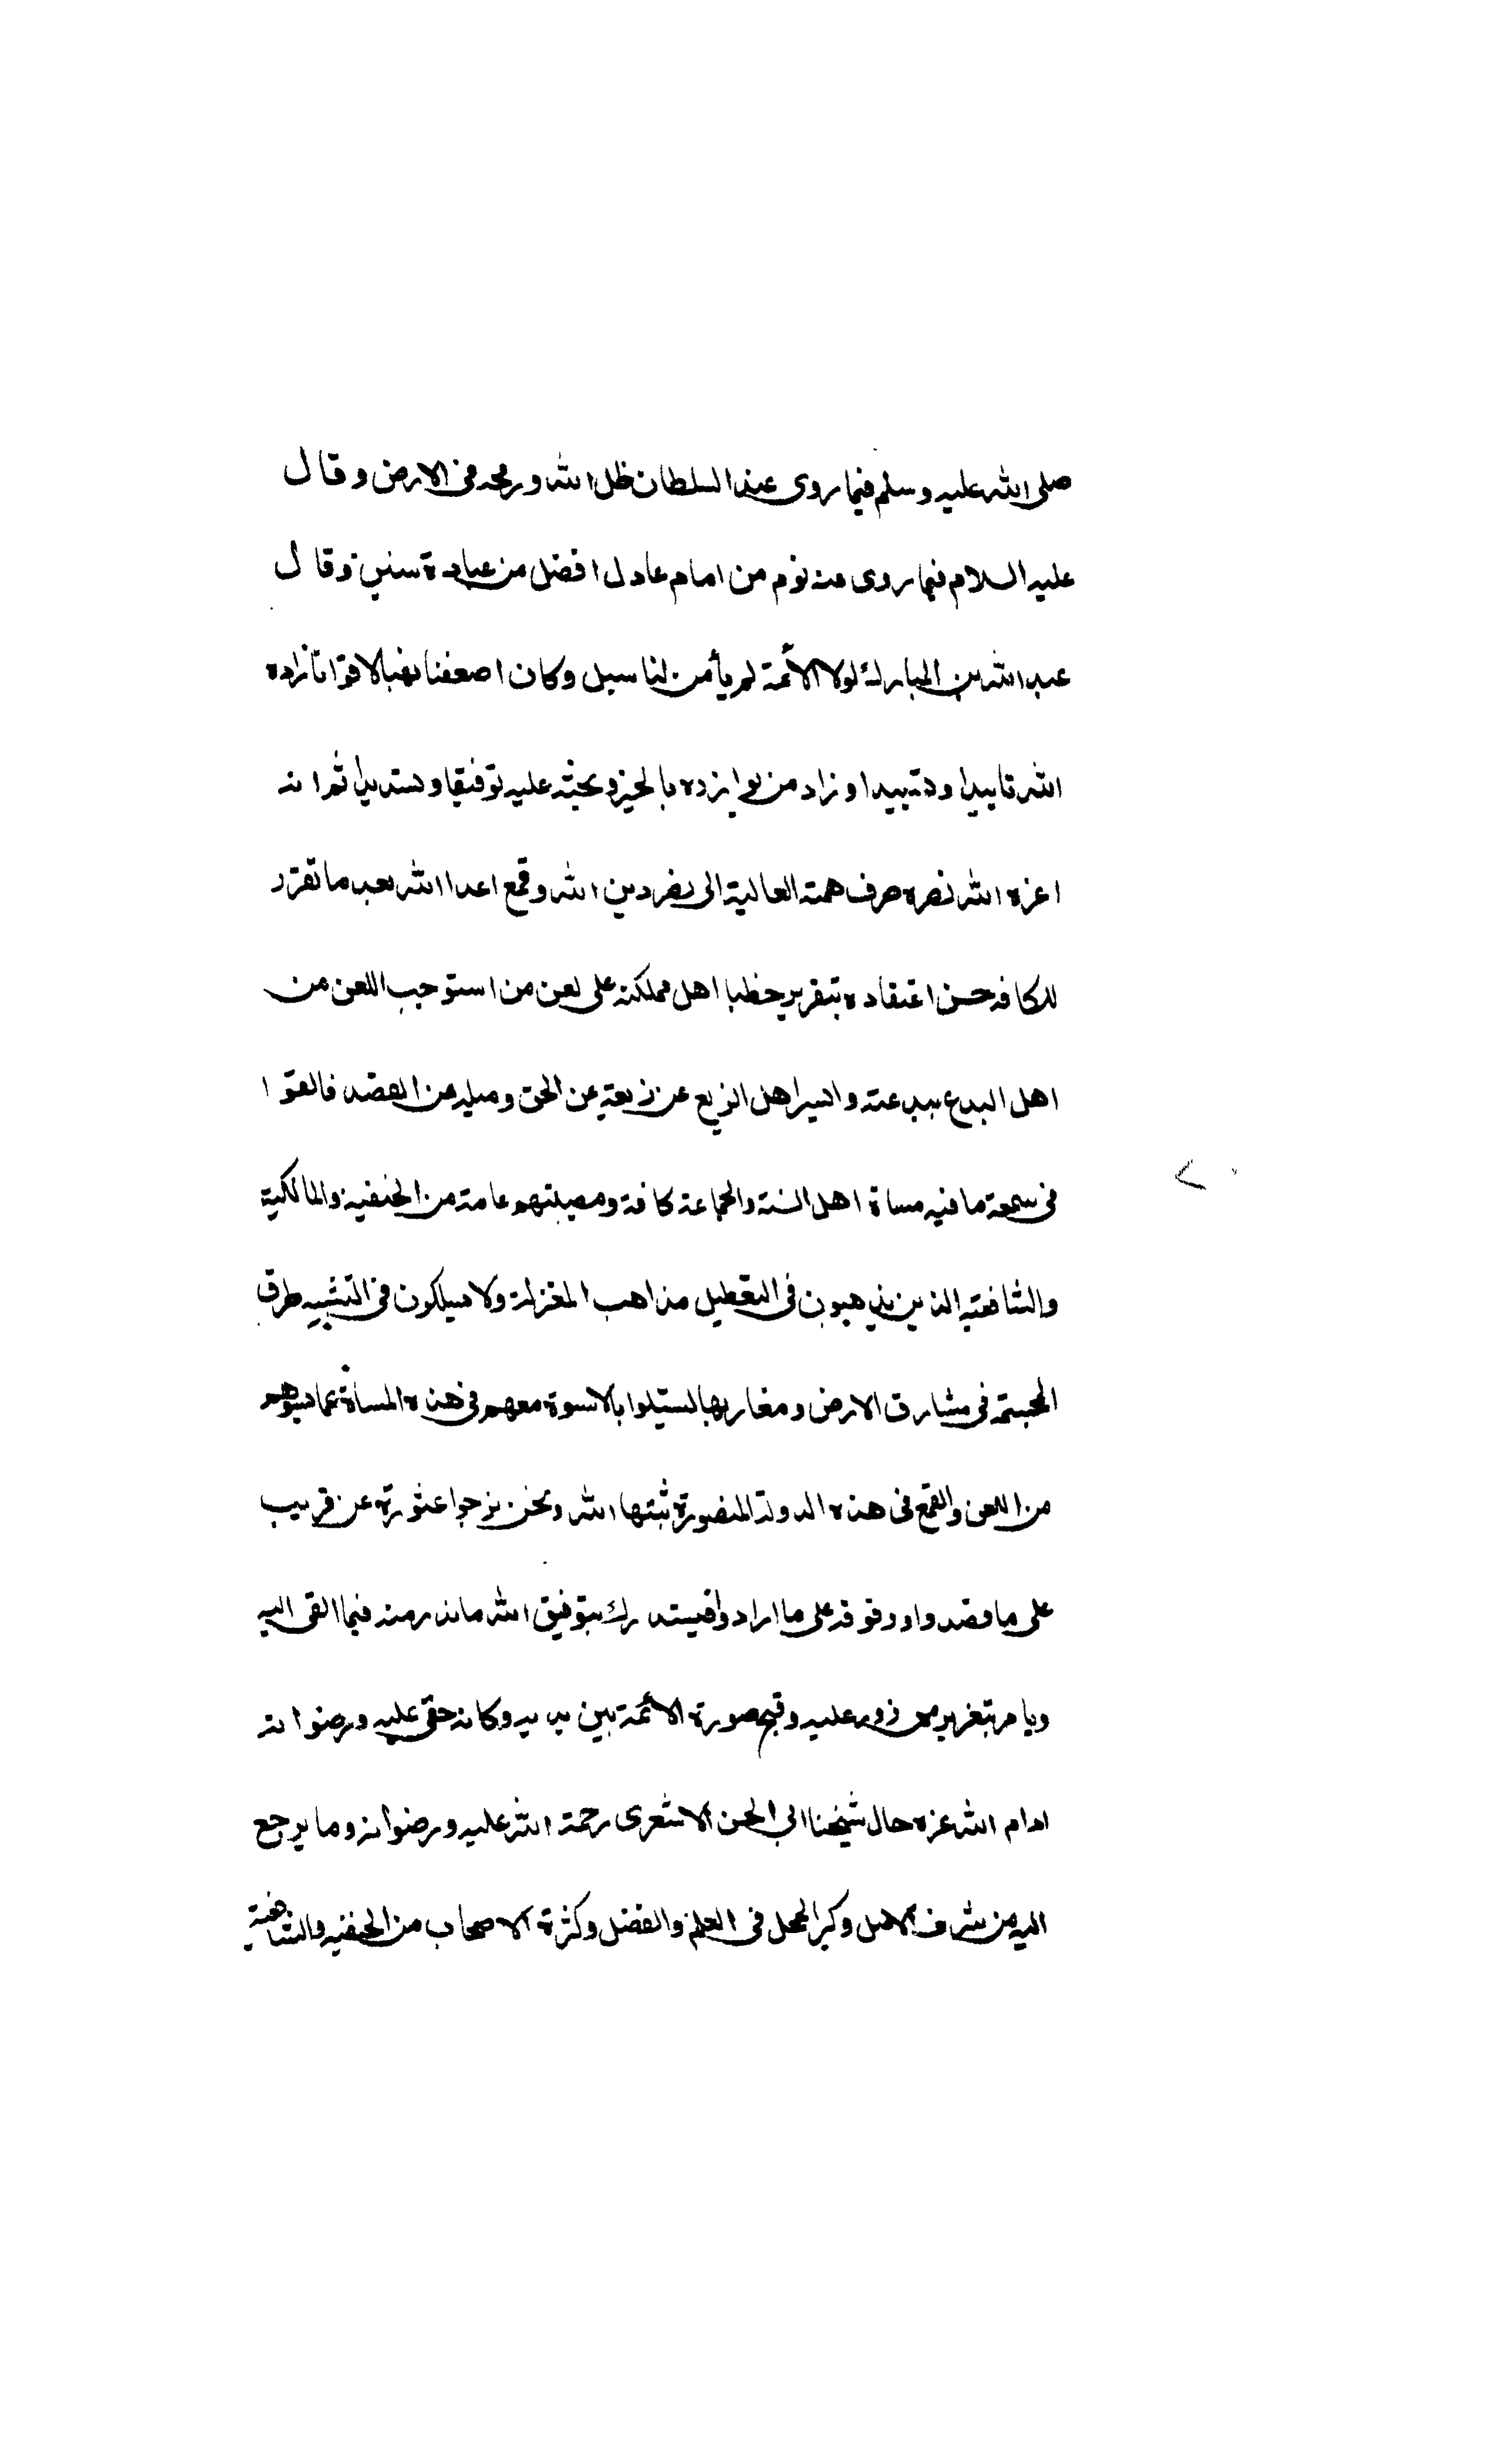 صلى الله عليه وسلم فيما روى عنه السلطان ظل الله ورمحه في الارض وقال
عليه السلام فيما روى عنه يوم من امام عادل افضل من عبادة ستين وقال
عبد الله بن المبارك لولا الأئمة لم يأمن لنا سبل وكان اضعفنا نهبا لاقوانا زاده
الله تاييدا و وزاد من يوازره بالخير ويحثه عليه توفيقا وتسديدا ثم انه
اعزه الله نصره صرف همته العالية الى نصر دين الله وقمع اعدا الله بعد ما تقرر
للكافه حسن اعتقاده بتقرير خطبا اهل مملكته على لعن من استوجب اللعن من
اهل البدع ببدعته وايس اهل الزيغ عن زيغه عن الحق وميله عن القصد فالقوا
في سمعه ما فيه مساة اهل السنة والجماعة كافة ومصيبتهم عامة من الحنفيه والمالكية
والشافعيه الذين يذهبون في التعطيل مذاهب المعتزلة ولا يسلكون في التشبيه طرق
المجسمه في مشارق الارض ومغاربها ليستلوا بالاسوة معهم في هذه المسأة عما يسوهم
من اللعن والقمع في هذه الدولة المنصورة ثبتها الله ونحن نرجوا عثوره عن قريب
على ما قصدوا ووقوفه على ما ارادوا فيستدرك بتوفيق الله ما بدر منه فيما القى اليه
ويامر بتعزير من زور عليه وقبح صورة الأئمة بين يديه وكانه خفى عليه
ادام الله عزه حال شيخنا ابي الحسن الاشعري رحمة الله عليه ورضوانه وما يرجع
اليه من شرف الاصل وكبر المحل في العلم والفضل وكثرة الاصحاب من الحنفيه والشافعية